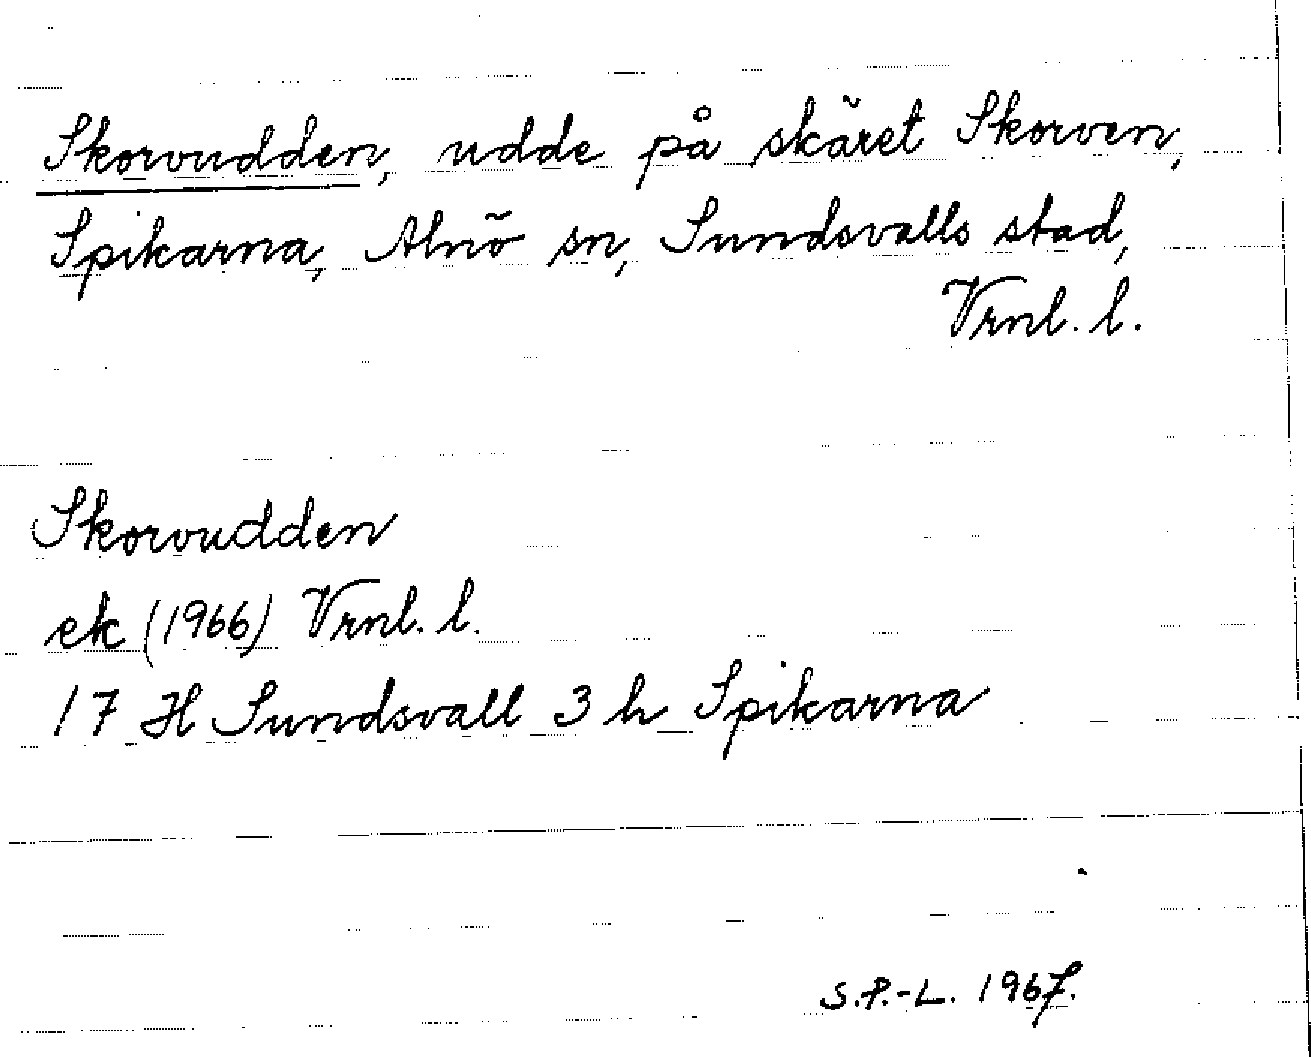 Skorvudden, udde på skäret Skorven,
Spikarna, Alnö sn, Sundsvalls stad,
Vrnl. l.
Skorvudden
ek (1966) Vrnl. l.
17 H Sundsvall 3 h Spikarna
S.P.-L. 1967.